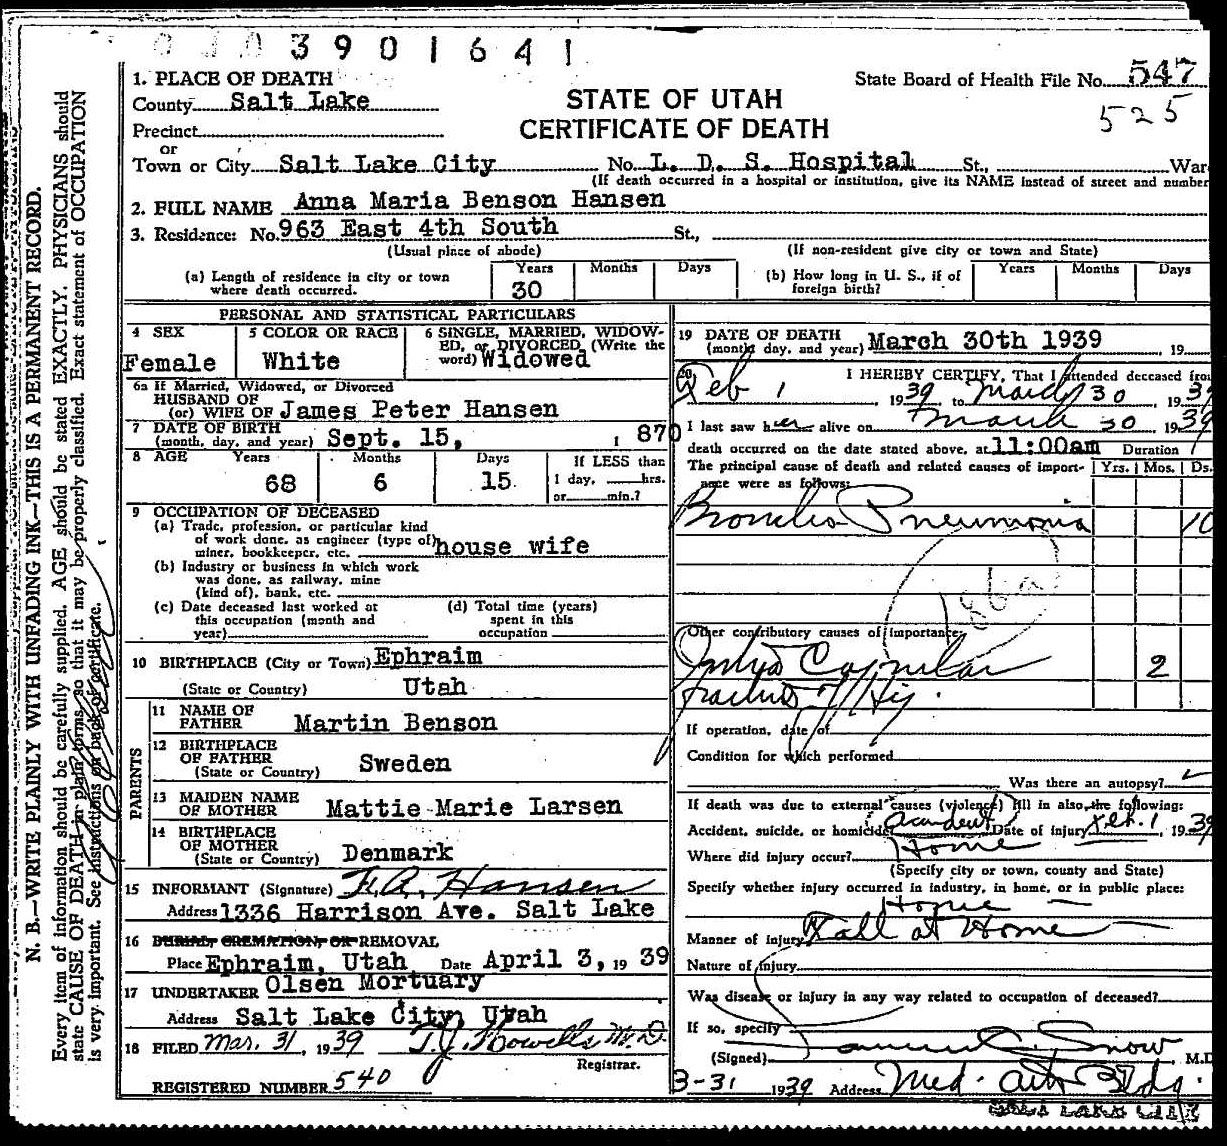 3901641
1. PLACE OF DEATH
State Board of Health File No. 547
County Salt Lake
STATE OF UTAH
525
Precinct
CERTIFICATE OF DEATH
or
Town or City Salt Lake City No. L. D. S. Hospital St., War
(If death occurred in a hospital or institution, give its NAME instead of street and number
2. FULL NAME Anna Maria Benson Hansen
3. Residence: No. 963 East 4th South St.,
(Usual place of abode) (If non-resident give city or town and State)
(a) Length of residence in city or town where death occurred. Years 30 Months Days
(b) How long in U. S., if of foreign birth? Years Months Days
PERSONAL AND STATISTICAL PARTICULARS
4 SEX Female
5 COLOR OR RACE White
6 SINGLE, MARRIED, WIDOW-
ED, or DIVORCED (Write the
word) Widowed
6a If Married, Widowed, or Divorced
HUSBAND OF
(or) WIFE OF James Peter Hansen
7 DATE OF BIRTH
(month, day, and year) Sept. 15, 1870
8 AGE Years 68 Months 6 Days 15
If LESS than
1 day, hrs.
or min.?
9 OCCUPATION OF DECEASED
(a) Trade, profession, or particular kind
of work done, as engineer (type of)
miner, bookkeeper, etc. house wife
(b) Industry or business in which work
was done, as railway, mine
(kind of), bank, etc.
(c) Date deceased last worked at
this occupation (month and
year)
(d) Total time (years)
spent in this
occupation
10 BIRTHPLACE (City or Town) Ephraim
(State or Country) Utah
PARENTS
11 NAME OF
FATHER Martin Benson
12 BIRTHPLACE
OF FATHER
(State or Country) Sweden
13 MAIDEN NAME
OF MOTHER Mattie Marie Larsen
14 BIRTHPLACE
OF MOTHER
(State or Country) Denmark
15 INFORMANT (Signature) F. A. Hansen
Address 1336 Harrison Ave. Salt Lake
16 BURIAL, CREMATION, OR REMOVAL
Place Ephraim, Utah Date April 3, 1939
17 UNDERTAKER Olsen Mortuary
Address Salt Lake City, Utah
18 FILED Mar. 31, 1939 T.J. Howells M.D.
Registrar.
REGISTERED NUMBER 540
19 DATE OF DEATH
(month, day, and year) March 30th 1939, 19
20 I HEREBY CERTIFY, That I attended deceased fro
Feb 1, 1939, to March 30, 1939
I last saw her alive on March 30, 1939
death occurred on the date stated above, at 11:00am Duration
The principal cause of death and related causes of import-
ance were as follows: Yrs. Mos. Ds.
Broncho Pneumonia 10
186a
Other contributory causes of importance:
Capsular 2
of Hip.
If operation, date of
Condition for which performed
Was there an autopsy?
If death was due to external causes (violence) fill in also the following:
Accident, suicide, or homicide Accident Date of injury Feb. 1, 1939
Where did injury occur? Home
(Specify city or town, county and State)
Specify whether injury occurred in industry, in home, or in public place:
Home
Manner of injury Fall at Home
Nature of injury
Was disease or injury in any way related to occupation of deceased?
If so, specify
(Signed) Snow M.D
3-31 1939 Address Med. Arts Bldg.
SALT LAKE CITY
N. B.—WRITE PLAINLY WITH UNFADING INK—THIS IS A PERMANENT RECORD.
Every item of information should be carefully supplied. AGE should be stated EXACTLY. PHYSICIANS should
state CAUSE OF DEATH in plain terms, so that it may be properly classified. Exact statement of OCCUPATION
is very important. See instructions on back of certificate.